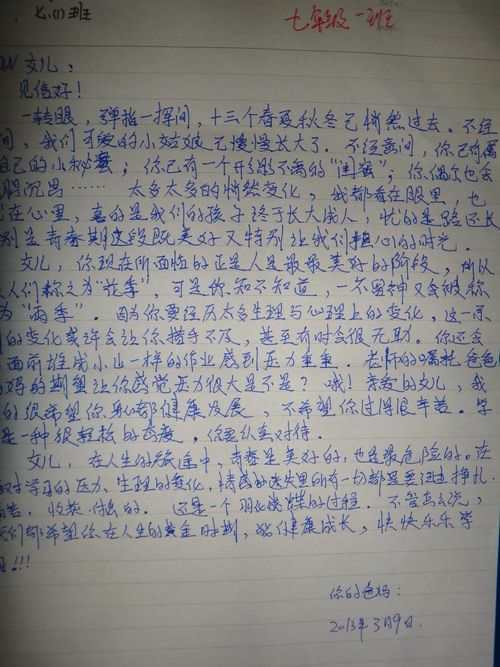 七(1)班
七年级一班
女儿：
见信好！
一转眼，弹指一挥间，十三个春夏秋冬已悄然过去。不经
间，我们可爱的小姑娘已慢慢长大了。不经意间，你已有属
自己的小秘蜜；你已有一个形影不离的“闺蜜”；你偶尔也会
沉思……　太多太多的悄然变化，我都看在眼里，也
在心里，喜的是我们的孩子终于长大成人，忧的是路还长
别是青春期这段既美好又特别让我们担心的时光。
女儿，你现在所面临的正是人最最美好的阶段，所以
人们称之为“花季”，可是你知不知道，一不留神又会被称
为“雨季”。因为你要经历太多生理与心理上的变化，这一系
的变化或许会让你措手不及，甚至有时会很无助。你还会
面前堆成小山一样的作业感到压力重重。老师的嘱托爸爸
妈的期望让你感觉压力很大是不是？哦！亲爱的女儿，我
的很希望你身心都健康发展，不希望你过得很辛苦。学
是一种很轻松的态度，你要认真对待。
女儿，在人生的旅途中，青春是美好的，也是最危险的。在
对学习的压力、生理的变化，情感的迷茫里的有一切都需要
收获、付出的。还是一个羽化成蝶的过程。不管怎么说，
我们都希望你在人生的黄金时期，能健康成长，快快乐乐学
！！！
你的爸妈：
2013年3月9日.